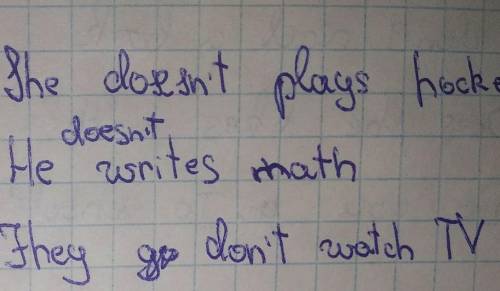 She doesn't plays hocke
doesn't
He writes math
They go don't watch TV